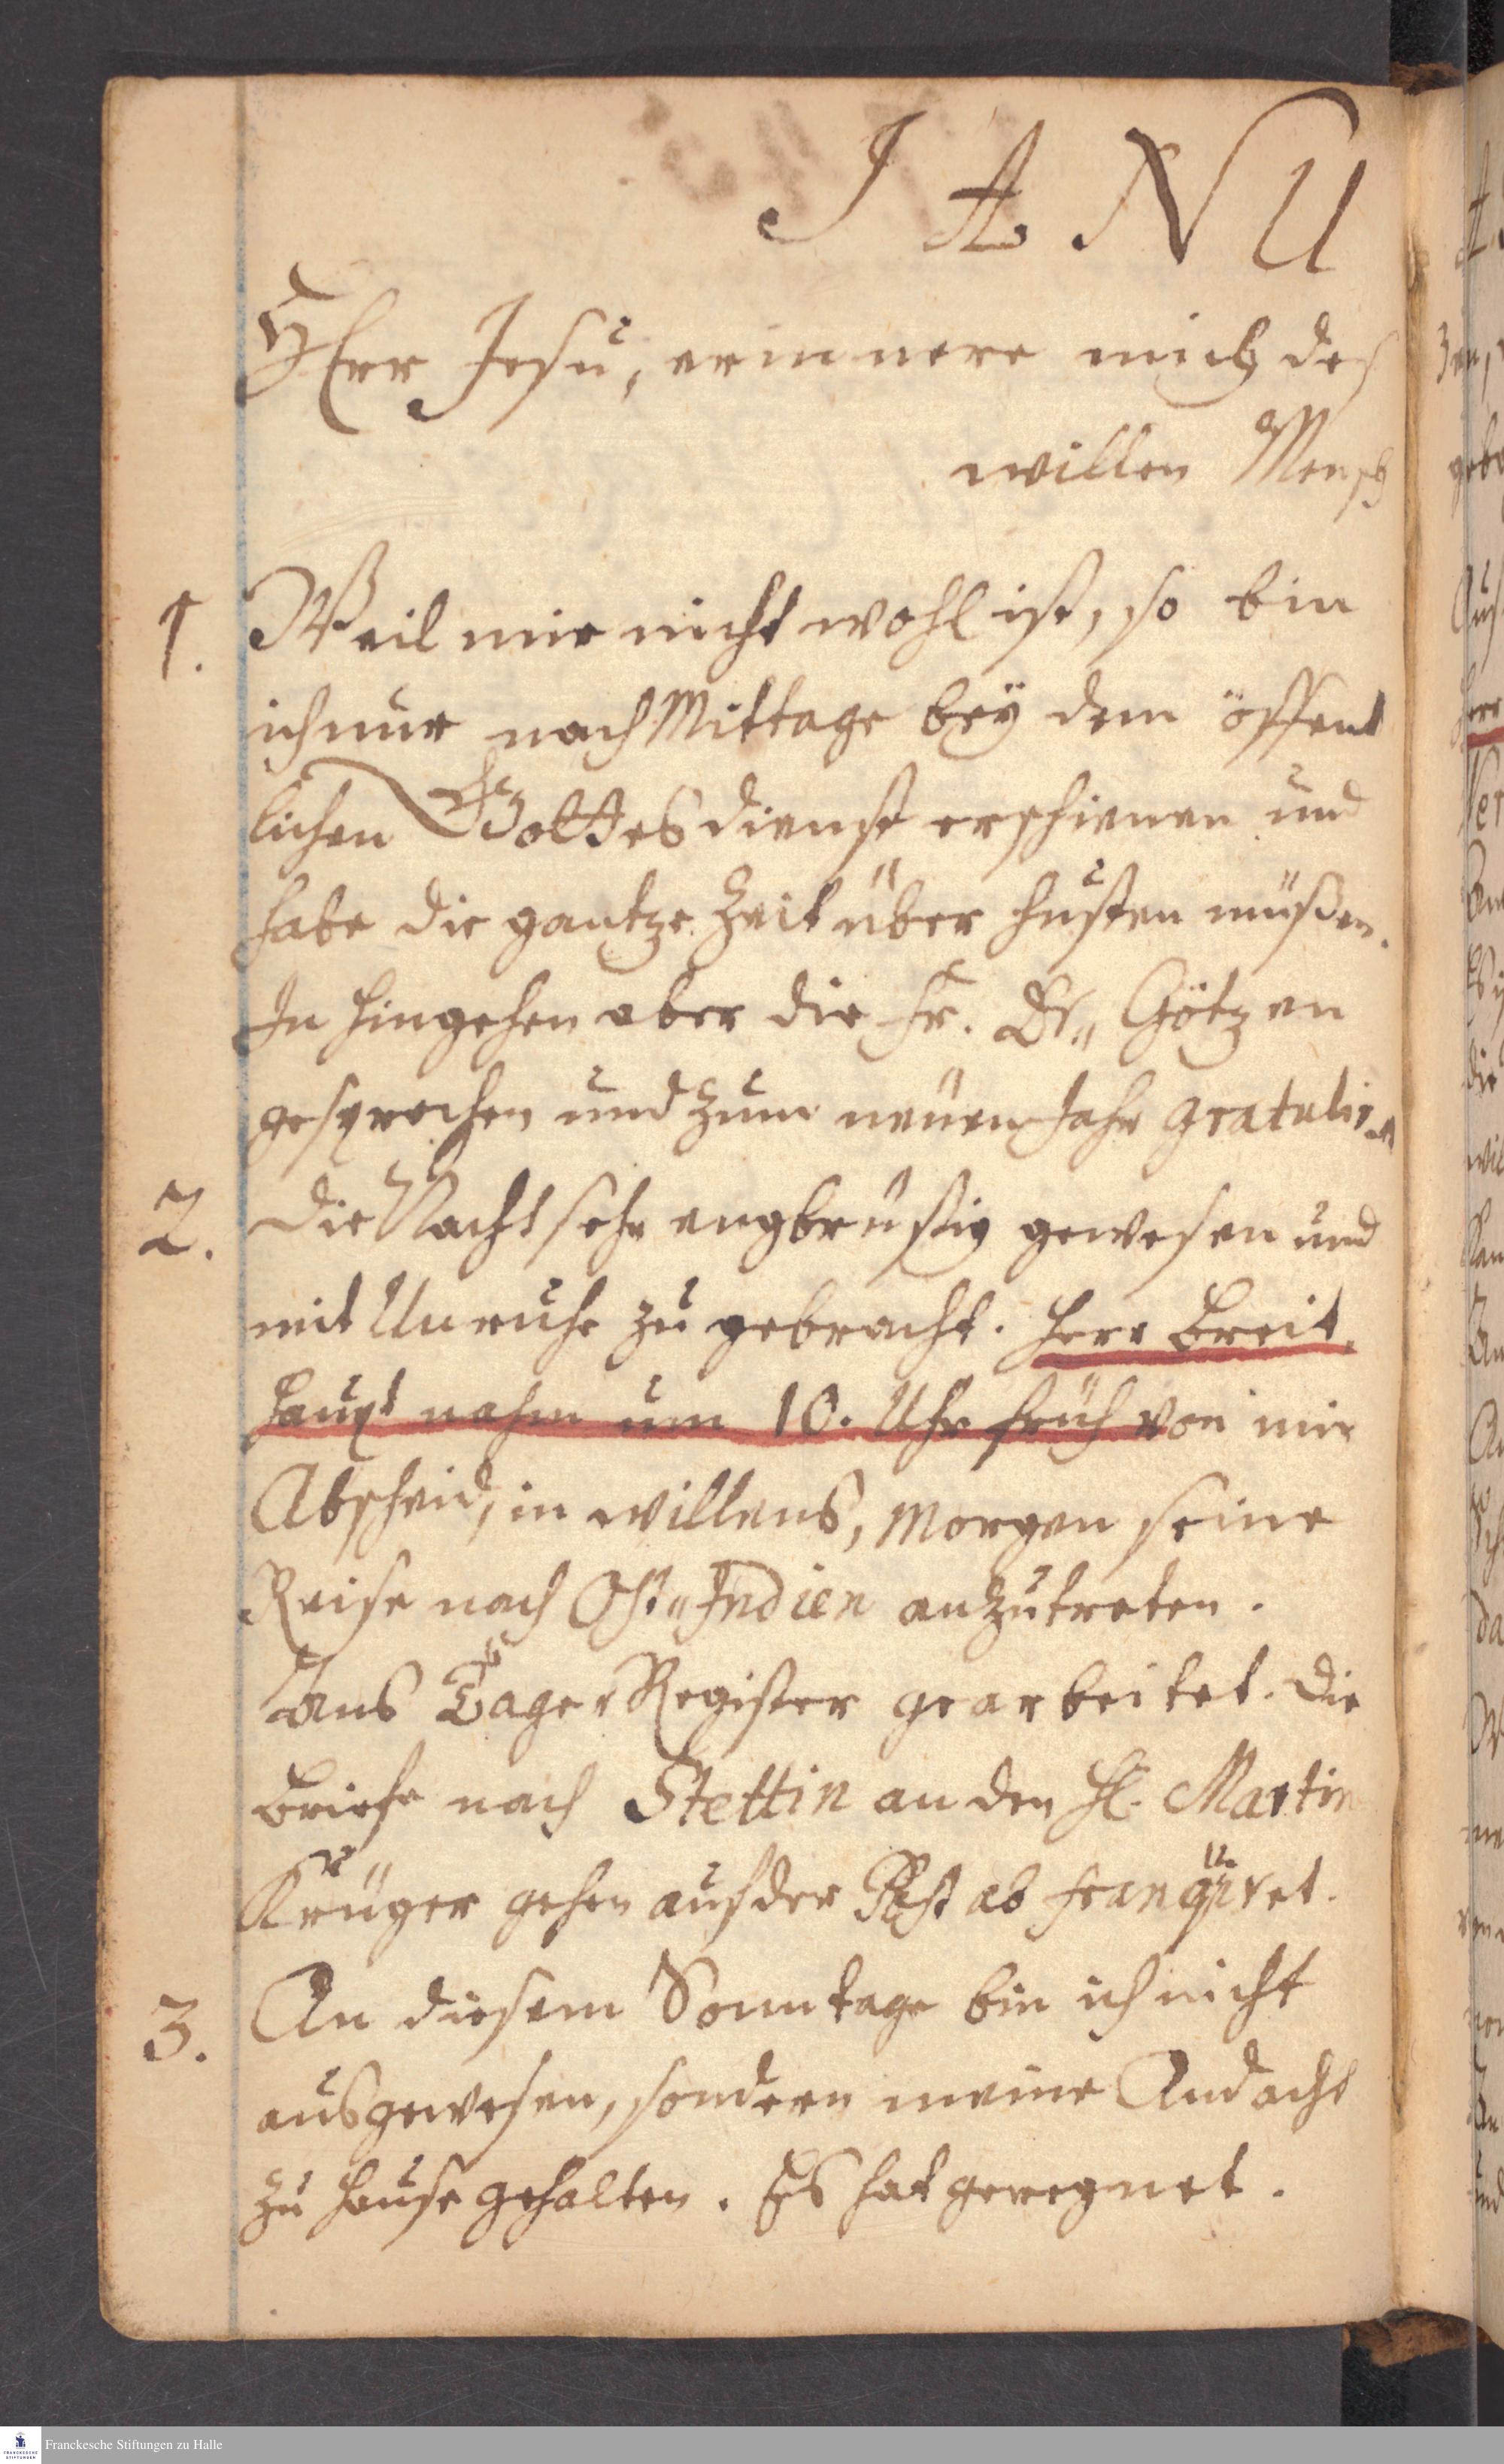 J A N U
HErr Jesu, erinnere mich des
willen Mensch
1. Weil mir nicht wohl ist, so bin
ich nur nach Mittage bey dem öffent
lichen Gottesdienst erschienen und
habe die gantze Zeit über husten müßen.
In hingehen aber die Fr. Dr„ Götzen
gesprochen und zum neuen Jahr gratulir
2. Die Nacht sehr engbrüstig gewesen und
mit Unruhe zu gebracht. Herr Breit,
haupt nahm um 10. Uhr früh von mir
Abscheid, in willens, morgen seine
Reise nach Ost„Indien anzutreten.
Ans Tage Register gearbeitet. Die
Briefe nach Stettin an den H. Martin
Krüger gehen auf der Post ab franqviret.
3. An diesem Sonntage bin ich nicht
ausgewesen, sondern meine Andacht
zu Hause gehalten. Es hat geregnet.
Franckesche Stiftungen zu Halle